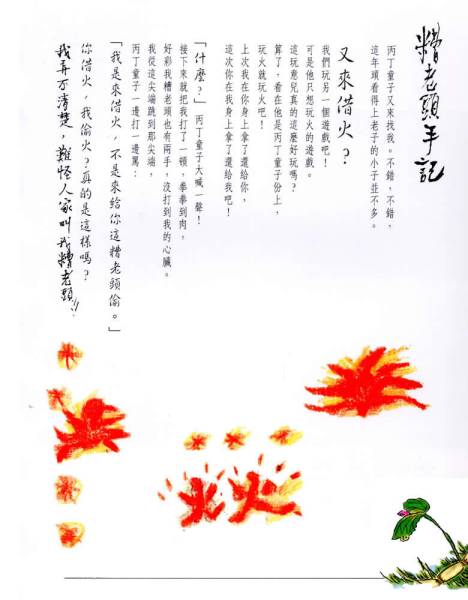 糟老頭手記
丙丁童子又來找我。不錯，不錯，
這年頭看得上老子的小子並不多。
又來借火？
我們玩另一個遊戲吧！
可是他只想玩火的遊戲。
這玩意兒真的這麼好玩嗎？
算了，看在他是丙丁童子份上，
玩火就玩火吧！
上次我在你身上拿了還給你，
這次你在我身上拿了還給我吧！
「什麼？」丙丁童子大喊一聲！
接下來就把我打了一頓，拳拳到肉，
好彩我糟老頭也有兩手，沒打到我的心臟。
我從這尖端跳到那尖端，
丙丁童子一邊打一邊罵：
「我是來借火，不是來給你這糟老頭偷。」
你借火，我偷火？真的是這樣嗎？
我弄不清楚，難怪人家叫我糟老頭！！
火